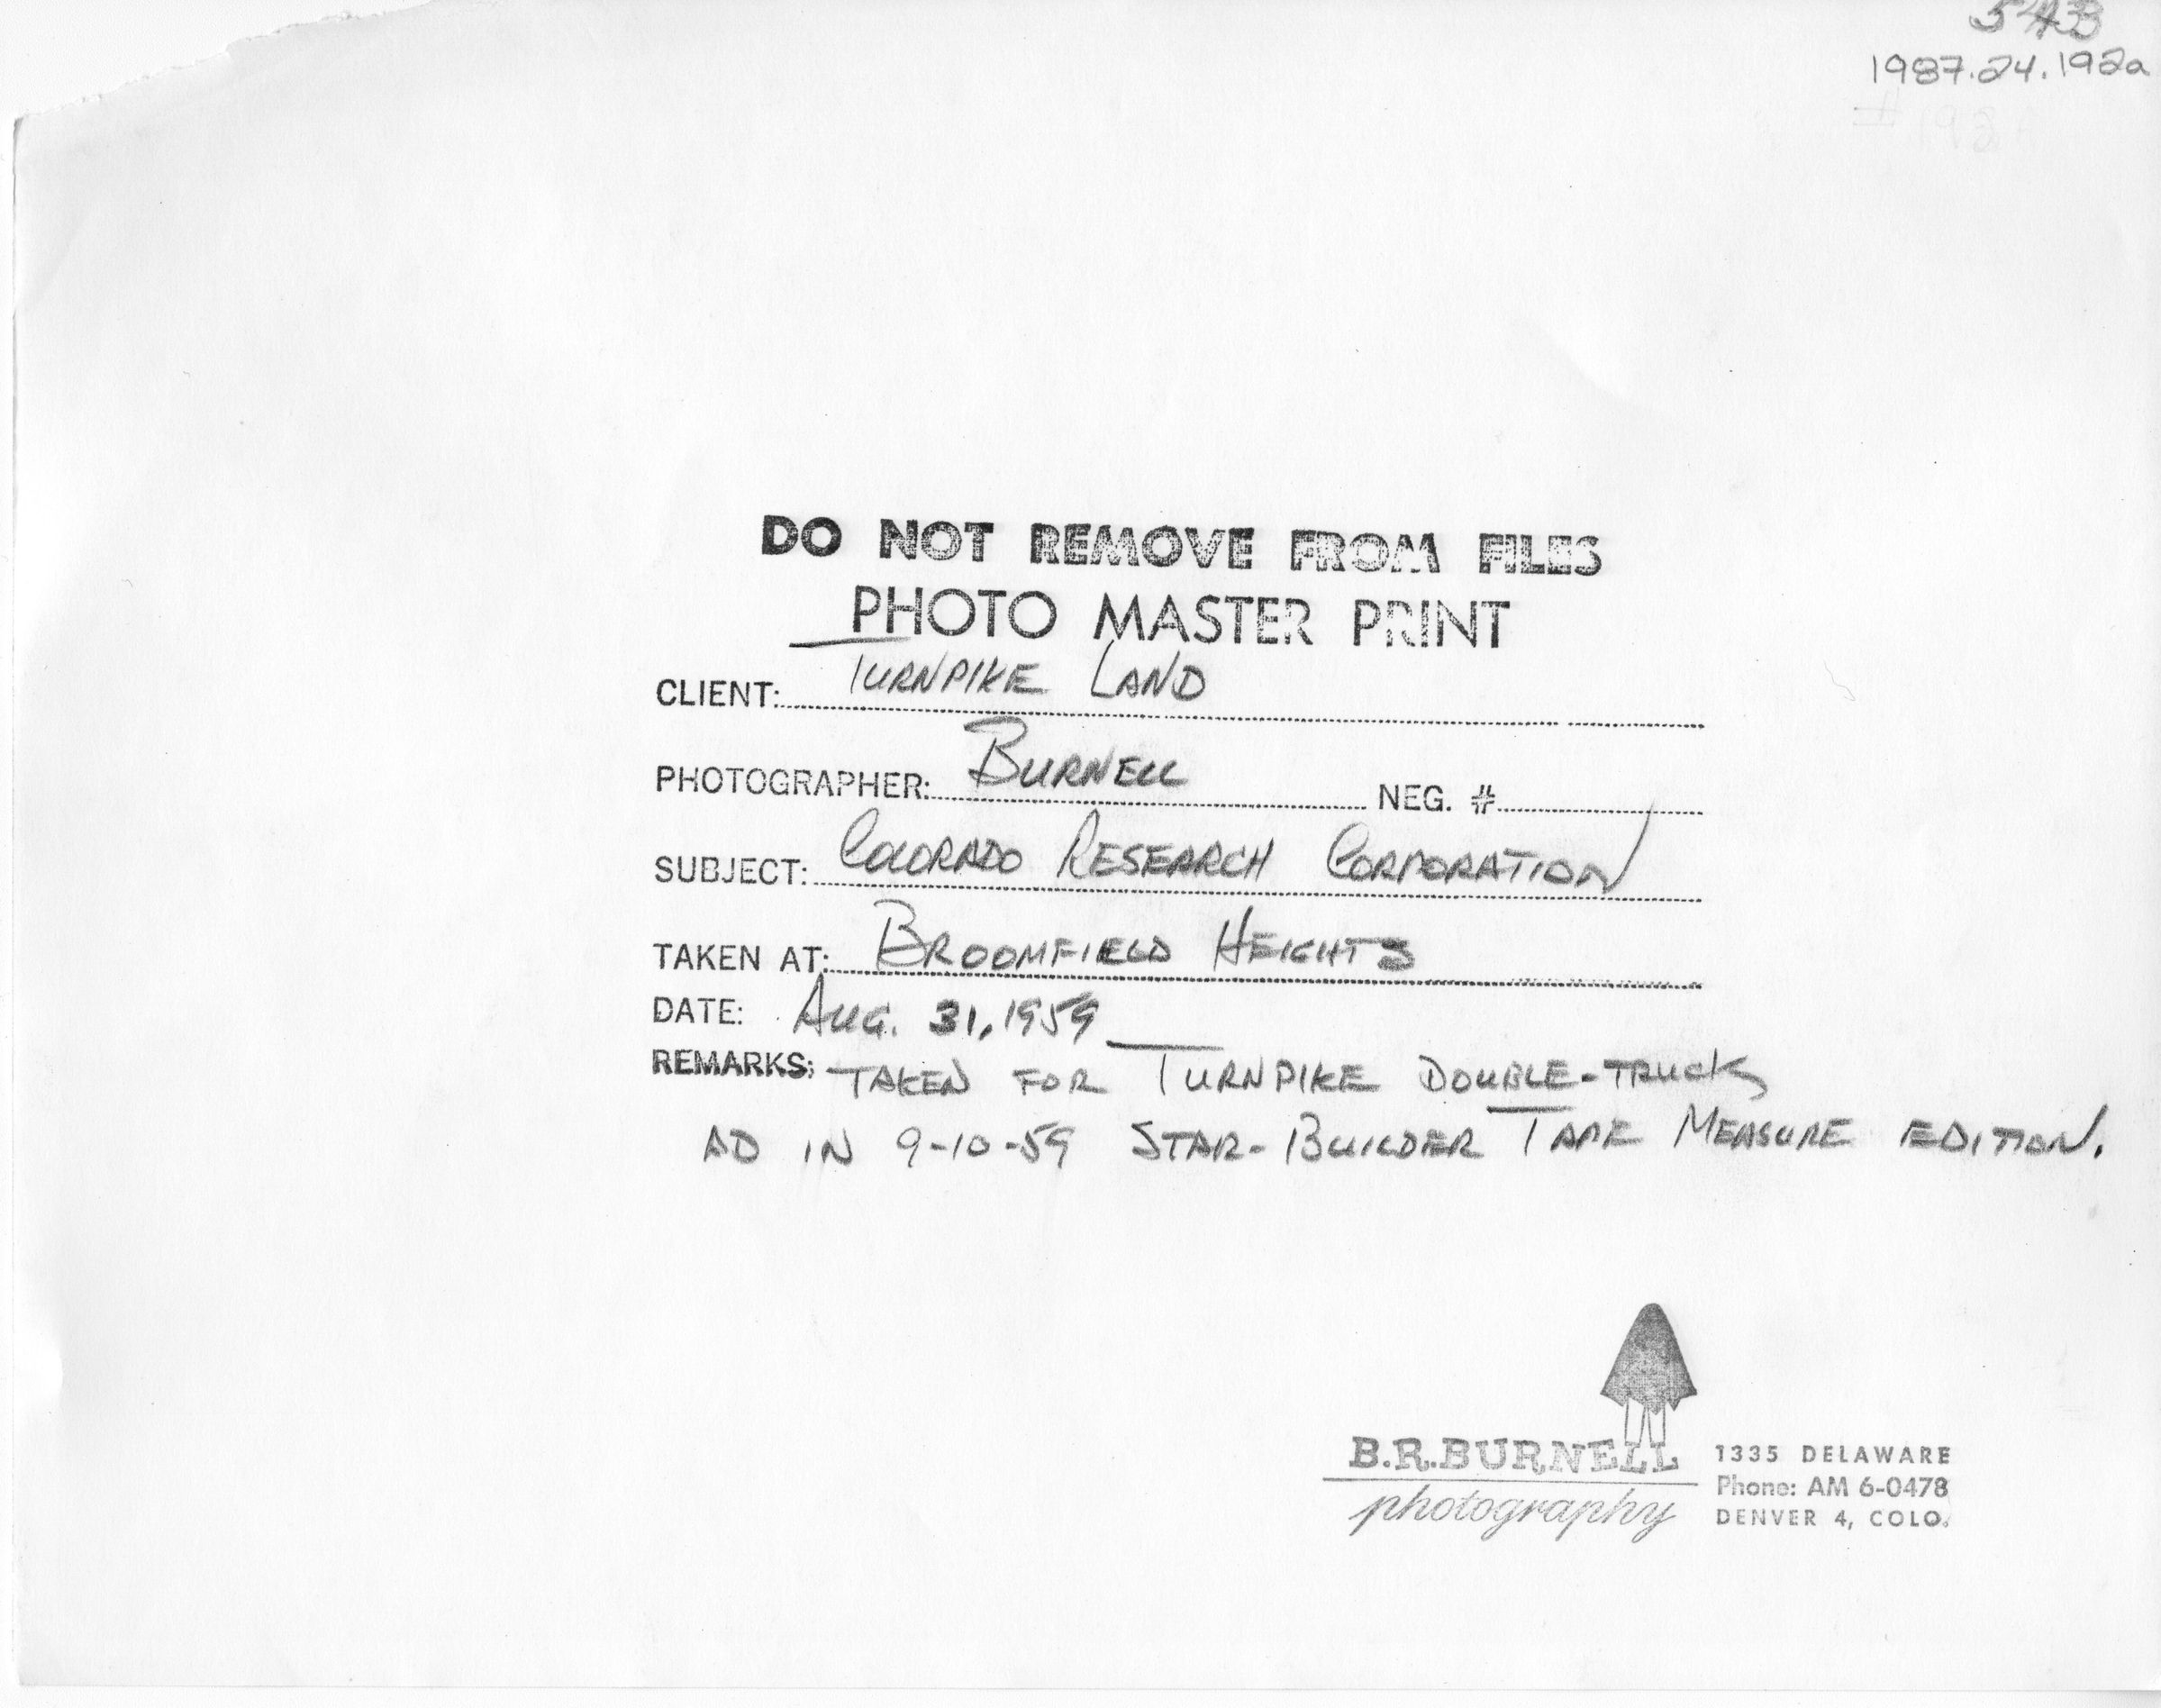 1987.24.192a
DO NOT REMOVE FROM FILES
PHOTO MASTER PRINT
CLIENT: TURNPIKE LAND
PHOTOGRAPHER: BURNELL NEG. #
SUBJECT: COLORADO RESEARCH CORPORATION
TAKEN AT: BROOMFIELD HEIGHTS
DATE: AUG. 31, 1959
REMARKS: TAKEN FOR TURNPIKE DOUBLE-TRUCK
AD IN 9-10-59 STAR-BUILDER TAPE MEASURE EDITION.
B.R.BURNELL
photography
1335 DELAWARE
Phone: AM 6-0478
DENVER 4, COLO.